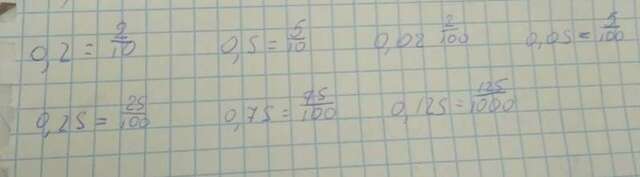 0,2 = 2/10 0,5 = 5/10 0,02 2/100 0,05 = 5/100
0,25 = 25/100 0,75 = 75/100 0,125 = 125/1000